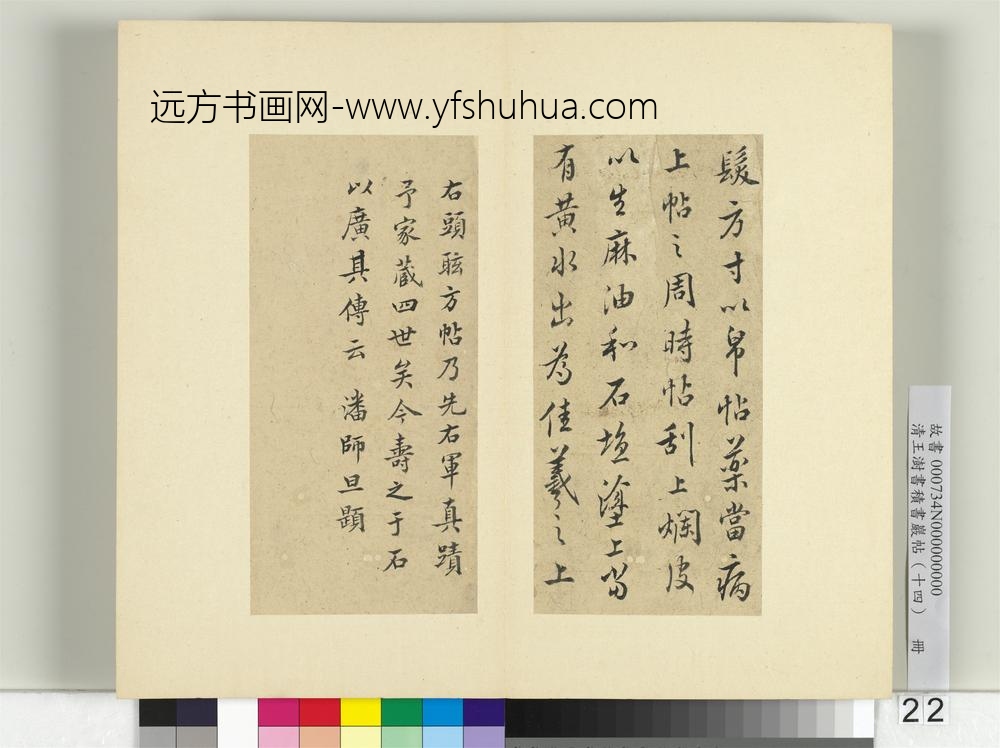 远方书画网-www.yfshuhua.com
髮方寸以帛帖藥當病
上帖之周時帖刮上爛皮
以生麻油和石塩塗上當
有黄水出為佳羲之上
右頭眩方帖乃先右軍真蹟
予家蔵四世矣今壽之于石
以廣其傳云 潘師旦顕
故書 000734N000000000
清王澍書積書巖帖(十四) 冊
22